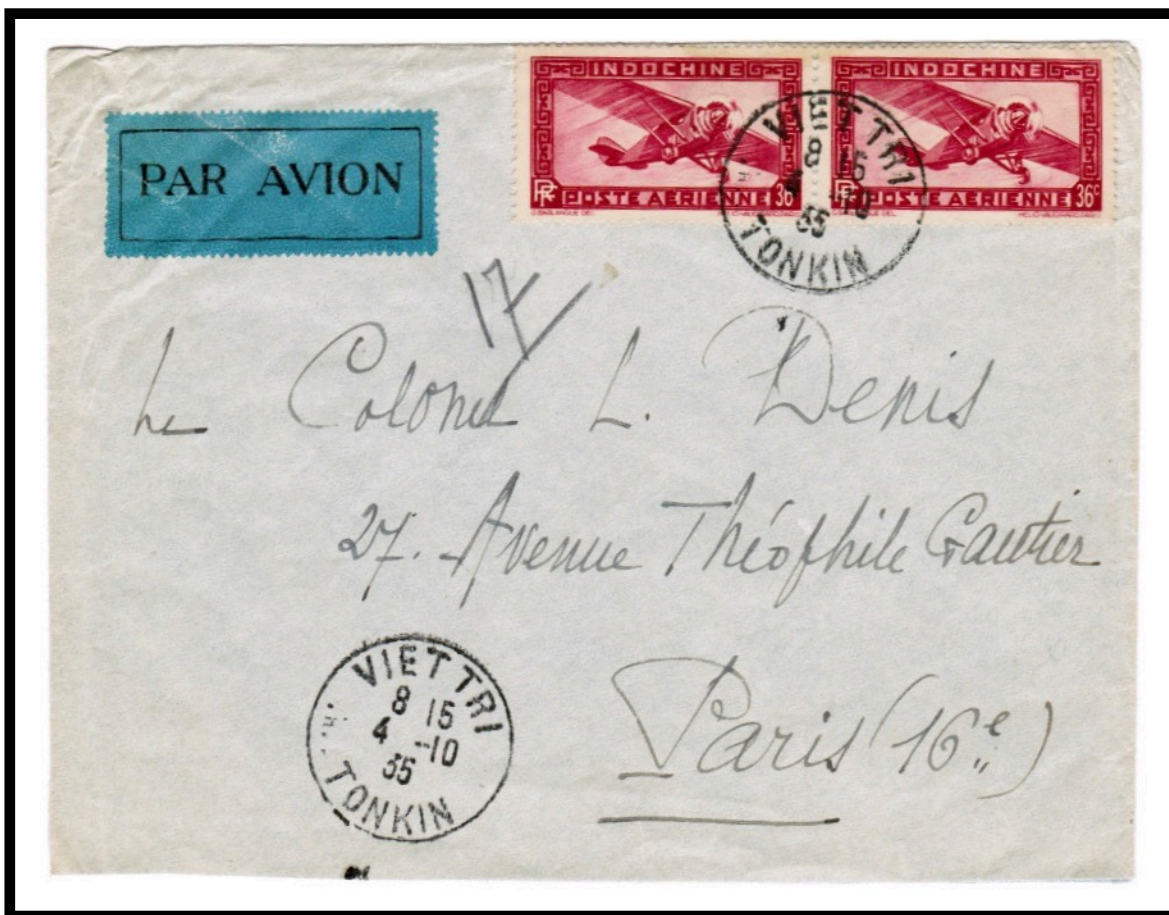 INDOCHINE
RF POSTE AÉRIENNE 36
INDOCHINE
RF POSTE AÉRIENNE 36c
PAR AVION
VIETTRI
8 15
4 -10
35
TONKIN
17
Le Colonel L. Denis
27. Avenue Théophile Gautier
Paris (16e)
VIETTRI
8 15
4 -10
35
TONKIN